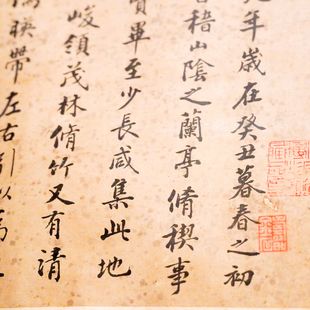 年歲在癸丑暮春之初
稽山陰之蘭亭脩稧事
畢至少長咸集此地
峻領茂林脩竹又有清
暎帶左右引以為